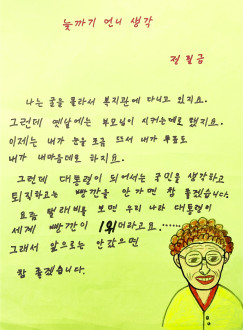 늦까기 언니 생각
정 필 금
나는 글을 몰라서 복지관에 다니고 있지요.
그런데 옛날에는 부모님이 시키는데로 했지요.
이제는 내가 글을 조금 쓰서 내가 무름도
내가 내마음데로 하지요.
그런데 대통령이 되어서는 국민을 생각하고
퇴직하고는 빵깐을 안가면 참 좋겠습니다.
요즘 탤래비를 보면 우리 나라 대통령이
세계 빵깐이 1위더라고요......
그래서 앞으로는 안갔으면
참 좋겠습니다.